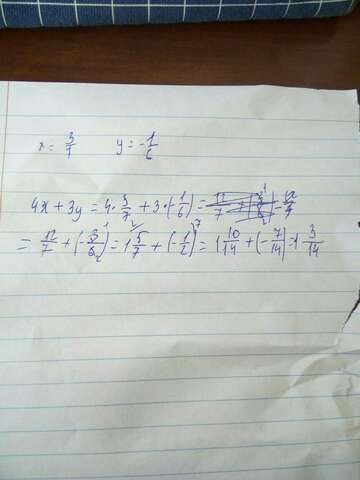 x = 3/7 y = -1/6
4x + 3y = 4 · 3/7 + 3 · (-1/6) = 12/7
= 12/7 + (-3/6) = 1 5/7 + (-1/2) = 1 10/14 + (-7/14) = 1 3/14